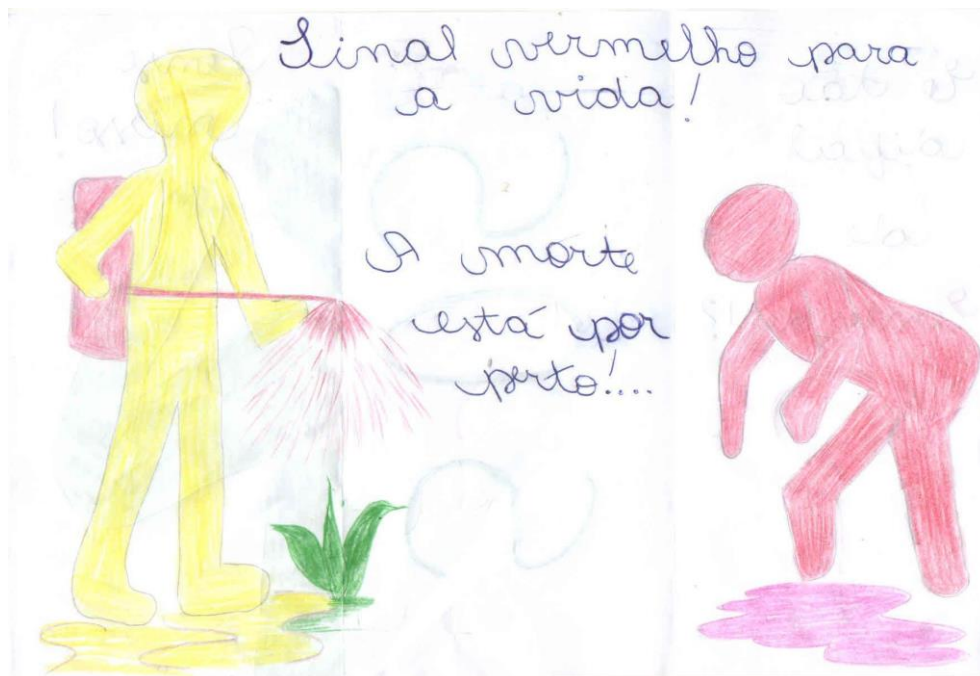 Sinal vermelho para
a vida!
A morte
está por
perto!....